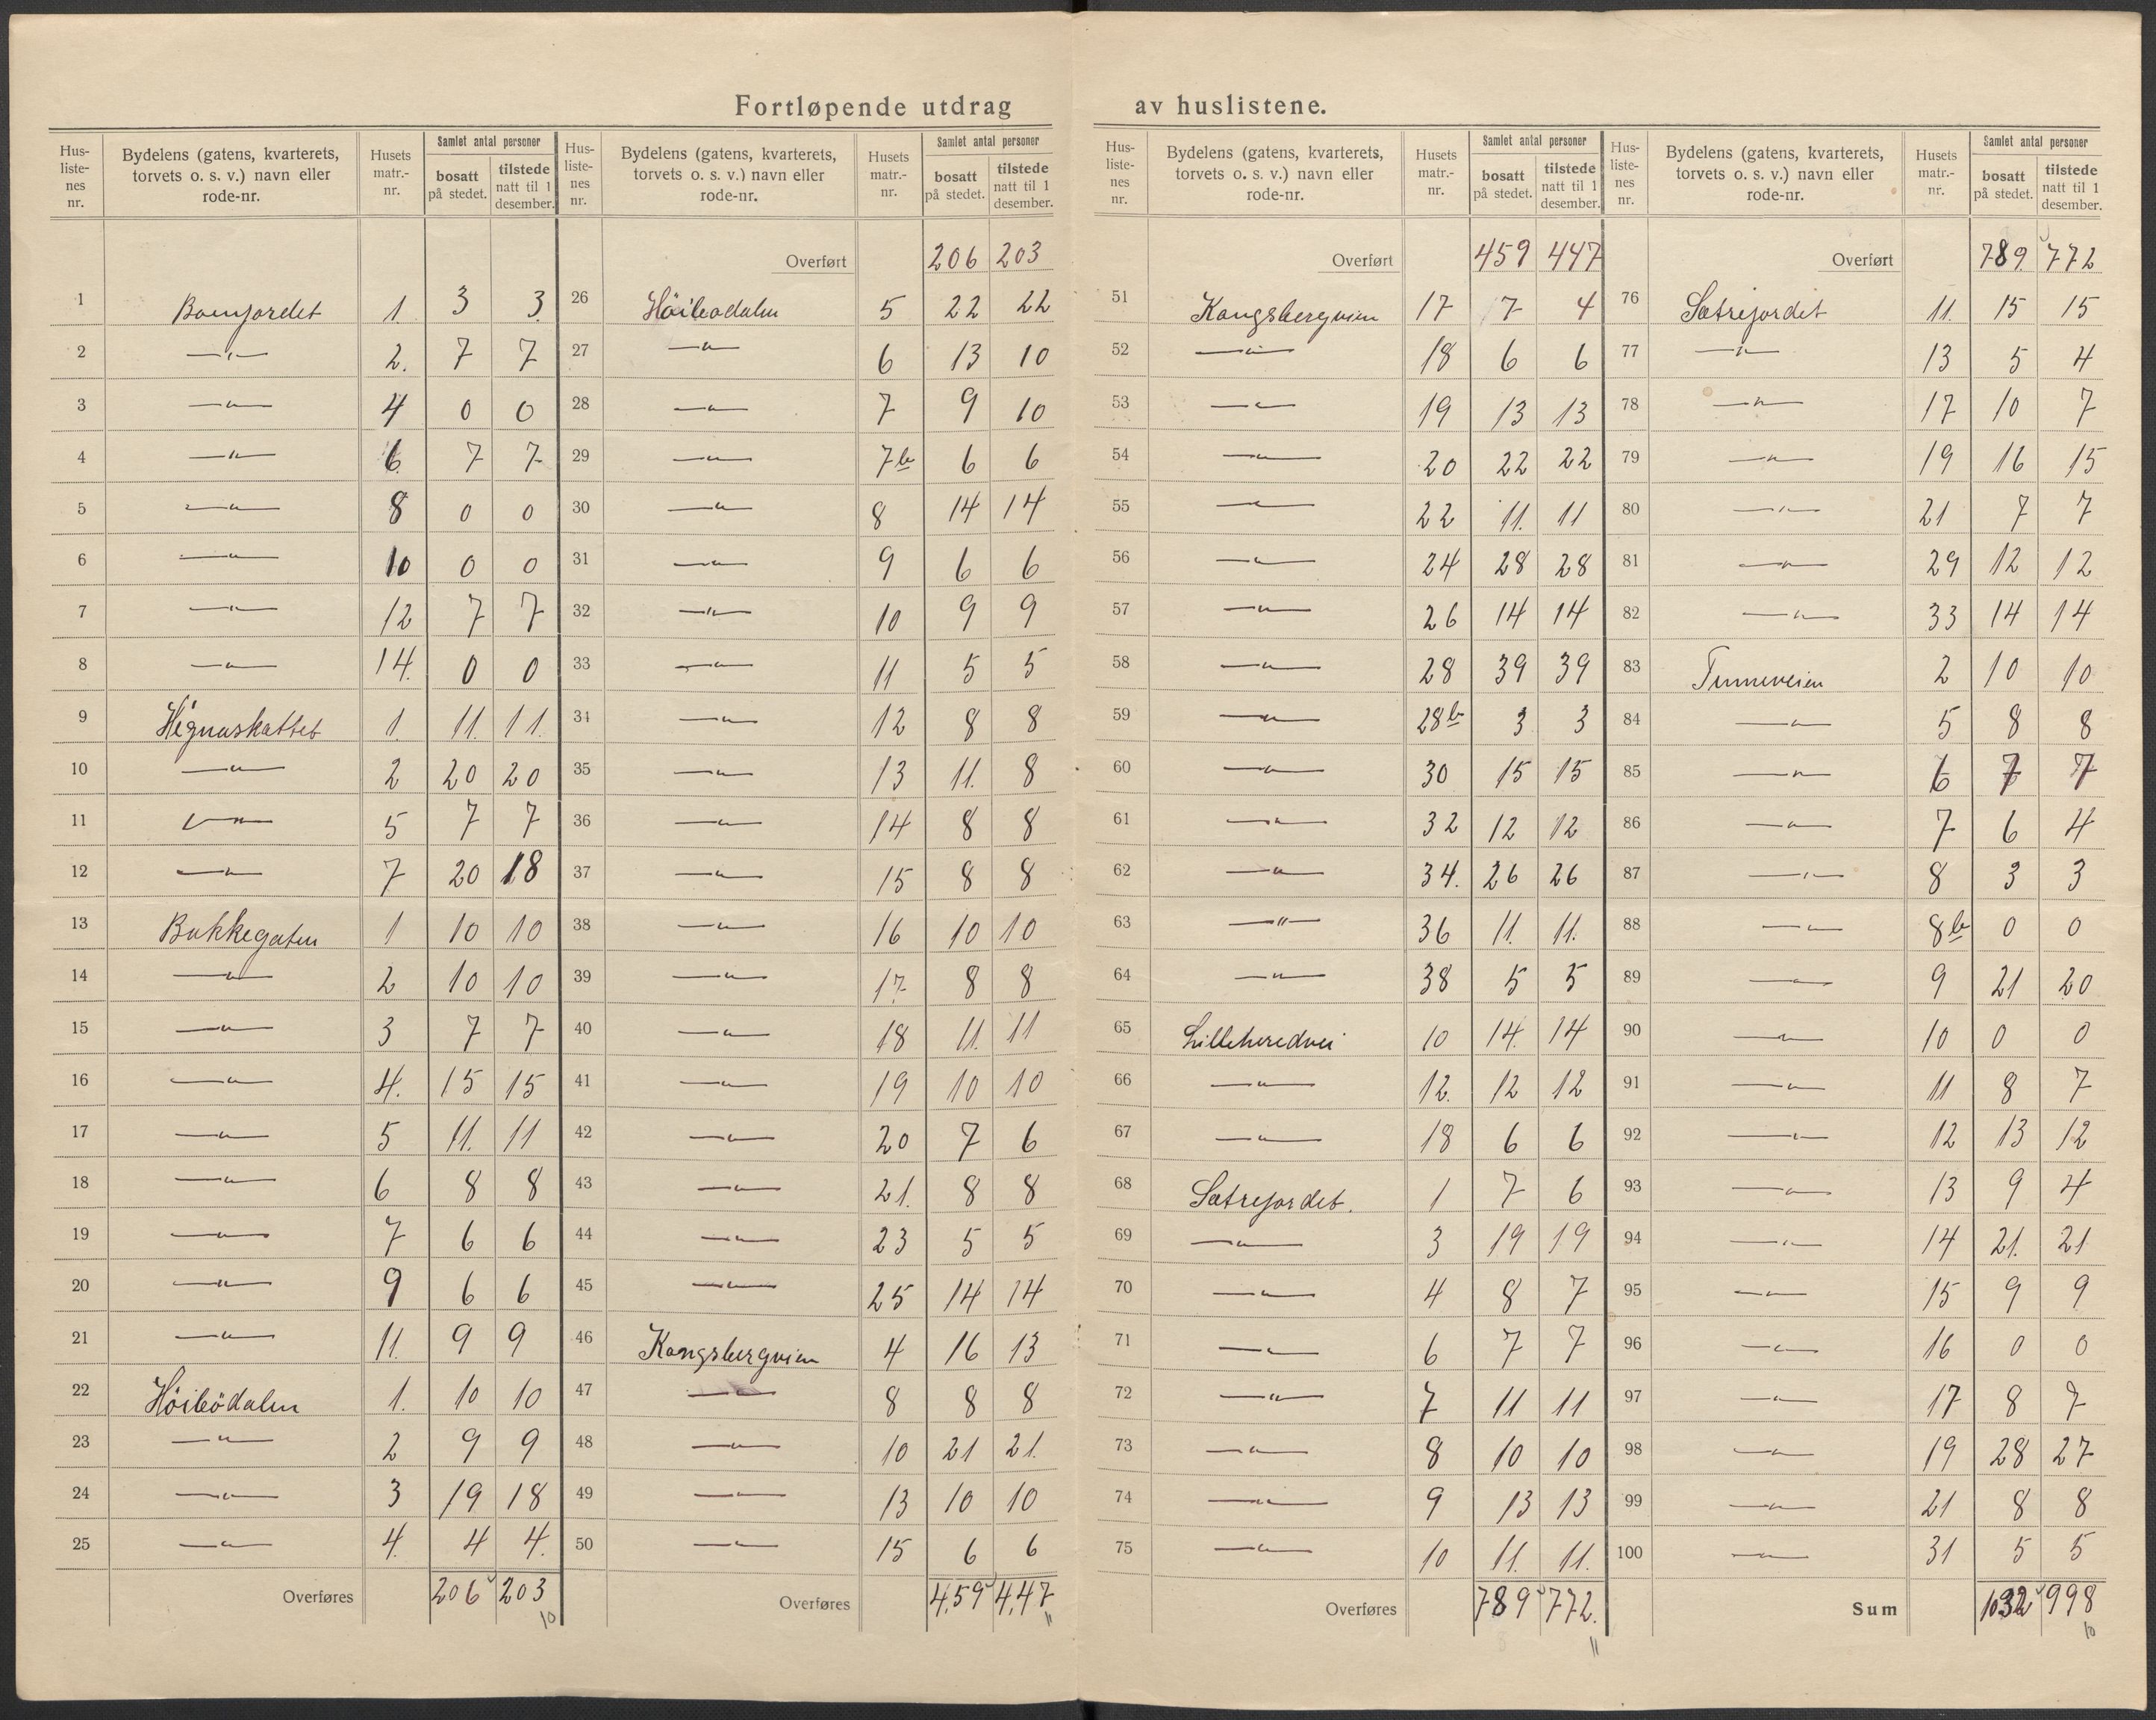 Fortløpende utdrag av huslistene.
Hus-listenes nr. | Bydelens (gatens, kvarterets, torvets o. s. v.) navn eller rode-nr. | Husets matr.-nr. | Samlet antal personer bosatt på stedet. | tilstede natt til 1 desember.
1 Bomjordet 1. 3 3
2 —"— 2. 7 7
3 —"— 4 0 0
4 —"— 6 7 7
5 —"— 8 0 0
6 —"— 10 0 0
7 —"— 12 7 7
8 —"— 14. 0 0
9 Hegnaskattet 1. 11. 11.
10 —"— 2 20 20
11 —"— 5 7 7
12 —"— 7 20 18
13 Bakkegaten 1 10 10
14 —"— 2 10 10
15 —"— 3 7 7
16 —"— 4. 15 15
17 —"— 5 11. 11
18 —"— 6 8 8
19 —"— 7 6 6
20 —"— 9 6 6
21 —"— 11. 9 9
22 Höibödalen 1. 10 10
23 —"— 2 9 9
24 —"— 3 19 18
25 —"— 4. 4 4.
Overføres 206 203
10
Hus-listenes nr. | Bydelens (gatens, kvarterets, torvets o. s. v.) navn eller rode-nr. | Husets matr.-nr. | Samlet antal personer bosatt på stedet. | tilstede natt til 1 desember.
Overført 206 203
26 Höibodalen 5 22 22
27 —"— 6 13 10
28 —"— 7 9 10
29 —"— 7b 6 6
30 —"— 8 14 14
31 —"— 9 6 6
32 —"— 10 9 9
33 —"— 11 5 5
34 —"— 12 8 8
35 —"— 13 11. 8
36 —"— 14 8 8
37 —"— 15 8 8
38 —"— 16 10 10
39 —"— 17 8 8
40 —"— 18 11. 11
41 —"— 19 10 10
42 —"— 20 7 6
43 —"— 21. 8 8
44 —"— 23 5 5
45 —"— 25 14 14
46 Kongsbergveien 4 16 13
47 —"— 8 8 8
48 —"— 10 21 21.
49 —"— 13 10 10
50 —"— 15 6 6
Overføres 459 447
11
Hus-listenes nr. | Bydelens (gatens, kvarterets, torvets o. s. v.) navn eller rode-nr. | Husets matr.-nr. | Samlet antal personer bosatt på stedet. | tilstede natt til 1 desember.
Overført 459 447
51 Kongsbergveien 17 7 4
52 —"— 18 6 6
53 —"— 19 13 13
54 —"— 20 22 22
55 —"— 22 11. 11
56 —"— 24 28 28
57 —"— 26 14 14
58 —"— 28 39 39
59 —"— 28b 3 3
60 —"— 30 15 15
61 —"— 32 12 12
62 —"— 34. 26 26
63 —"— 36 11. 11.
64 —"— 38 5 5
65 Lilleheredvei 10 14. 14
66 —"— 12. 12 12
67 —"— 18 6 6
68 Sætrejordet. 1 7 6
69 —"— 3 19 19
70 —"— 4 8 7
71 —"— 6 7 7
72 —"— 7 11 11
73 —"— 8 10 10
74 —"— 9 13 13
75 —"— 10 11. 11.
Overføres 789 772.
11
Hus-listenes nr. | Bydelens (gatens, kvarterets, torvets o. s. v.) navn eller rode-nr. | Husets matr.-nr. | Samlet antal personer bosatt på stedet. | tilstede natt til 1 desember.
Overført 789 772
76 Sætrejordet 11. 15 15
77 —"— 13 5 4
78 —"— 17 10 7
79 —"— 19 16 15
80 —"— 21 7 7
81 —"— 29 12 12
82 —"— 33 14 14
83 Tinneveien 2 10 10
84 —"— 5 8 8
85 —"— 6 7 7
86 —"— 7 6 4
87 —"— 8 3 3
88 —"— 8b 0 0
89 —"— 9 21 20
90 —"— 10 0 0
91 —"— 11 8 7
92 —"— 12 13 12
93 —"— 13 9 4
94 —"— 14 21. 21
95 —"— 15 9 9
96 —"— 16 0 0
97 —"— 17 8 7
98 —"— 19 28 27
99 —"— 21 8 8
100 —"— 31 5 5
Sum 1032 998
10